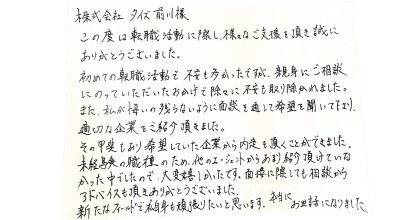 株式会社 タイズ 前川様
この度は転職活動に際し、様々なご支援を頂き誠に
ありがとうございました。
初めての転職活動で不安も多かったですが、親身にご相談
にのっていただいたおかげで徐々に不安も取り除かれました。
また、私が悔いの残らないように面談を通して希望を聞いて下さり、
適切な企業をご紹介頂きました。
その甲斐もあり希望していた企業から内定を頂くことができました。
未経験の職種のため、他のエージェントからあまり紹介頂けていな
かった中でしたので、大変嬉しかったです。面接に際しても相談から
アドバイスも頂きありがとうございました。
新たなフィールドで私自身も頑張りたいと思います。本当に
お世話になりました。